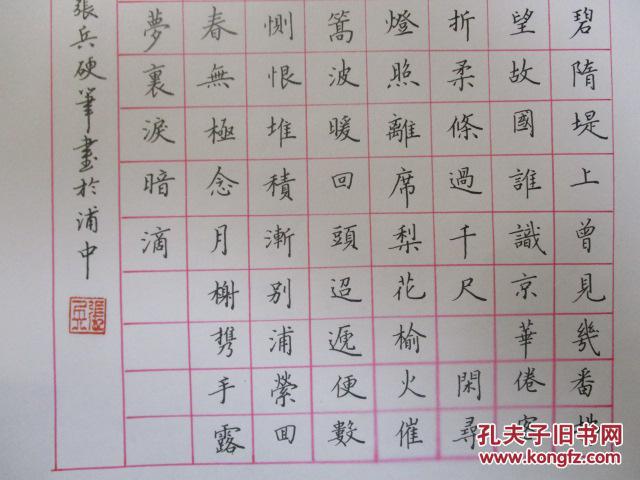 碧隋堤上曾見幾番
望故國誰識京華倦客
折柔條過千尺 閑尋
燈照離席梨花榆火催
篙波暖回頭迢遞便數
惻恨堆積漸别浦縈囬
春無極念月榭携手露
夢裏淚暗滴
張兵硬筆書於浦中
孔夫子旧书网
www.kongfz.com